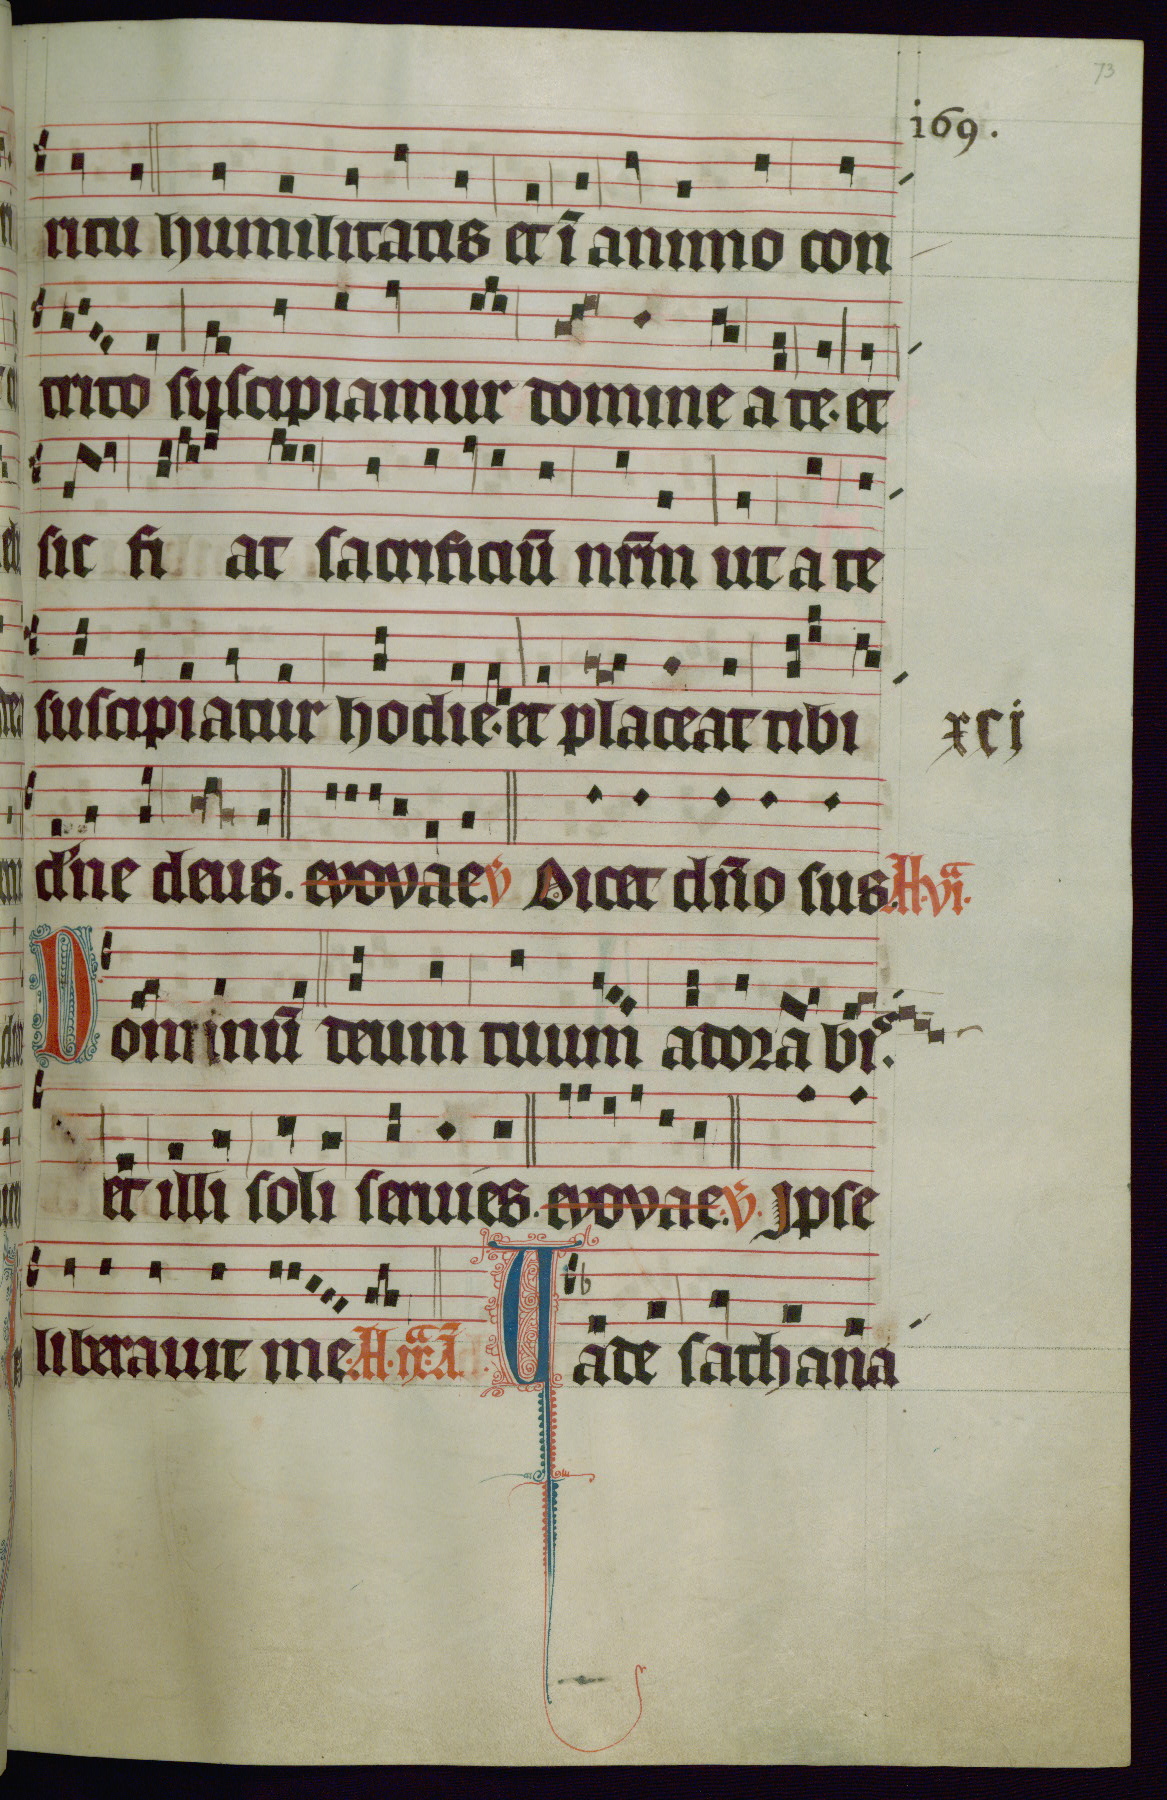 73
169.
ritu humilitatis et ī animo con
trito suscipiamur domine a te. et
sic fi at sacrificiū nr̄m ut a te
suscipiatur hodie. et placeat tibi
xci
dn̄e deus. evovae. V Dicet dn̄o sus. A. vi.
Dominū deum tuum adorabis.
et illi soli servies. evovae. V. Ipse
liberavit me. A. Vade sathana